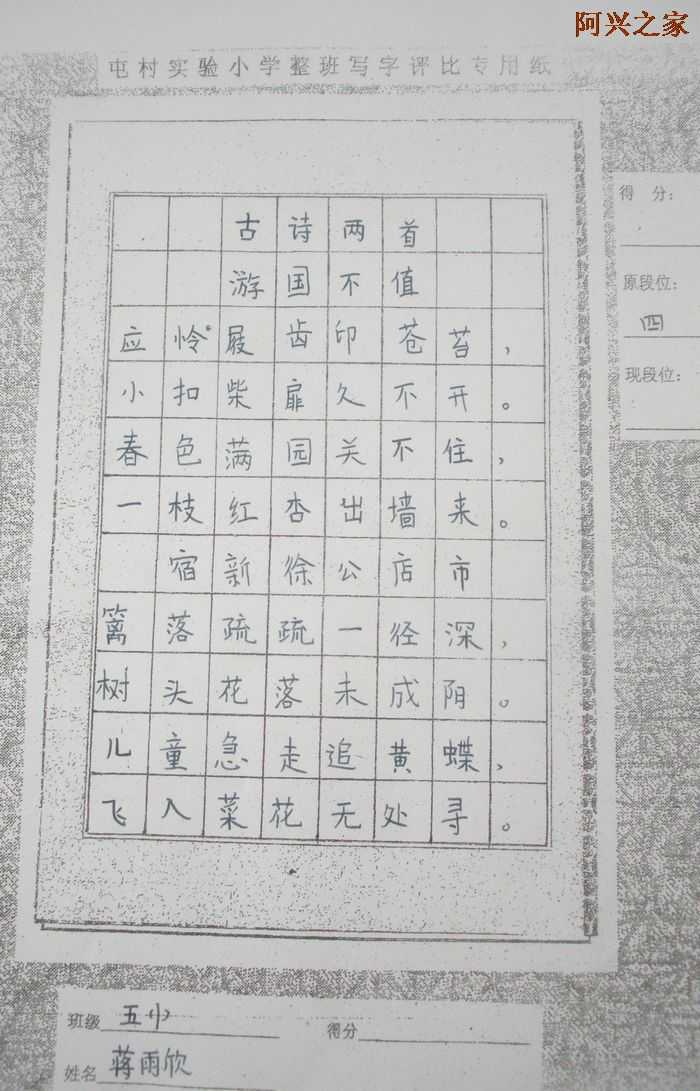 阿兴之家
屯村实验小学整班写字评比专用纸
古诗两首
游国不值
应怜屐齿印苍苔，
小扣柴扉久不开。
春色满园关不住，
一枝红杏出墙来。
宿新徐公店市
篱落疏疏一径深，
树头花落未成阴。
儿童急走追黄蝶，
飞入菜花无处寻。
得 分：
原段位：
四
现段位：
班级 五 得分
姓名 蒋雨欣